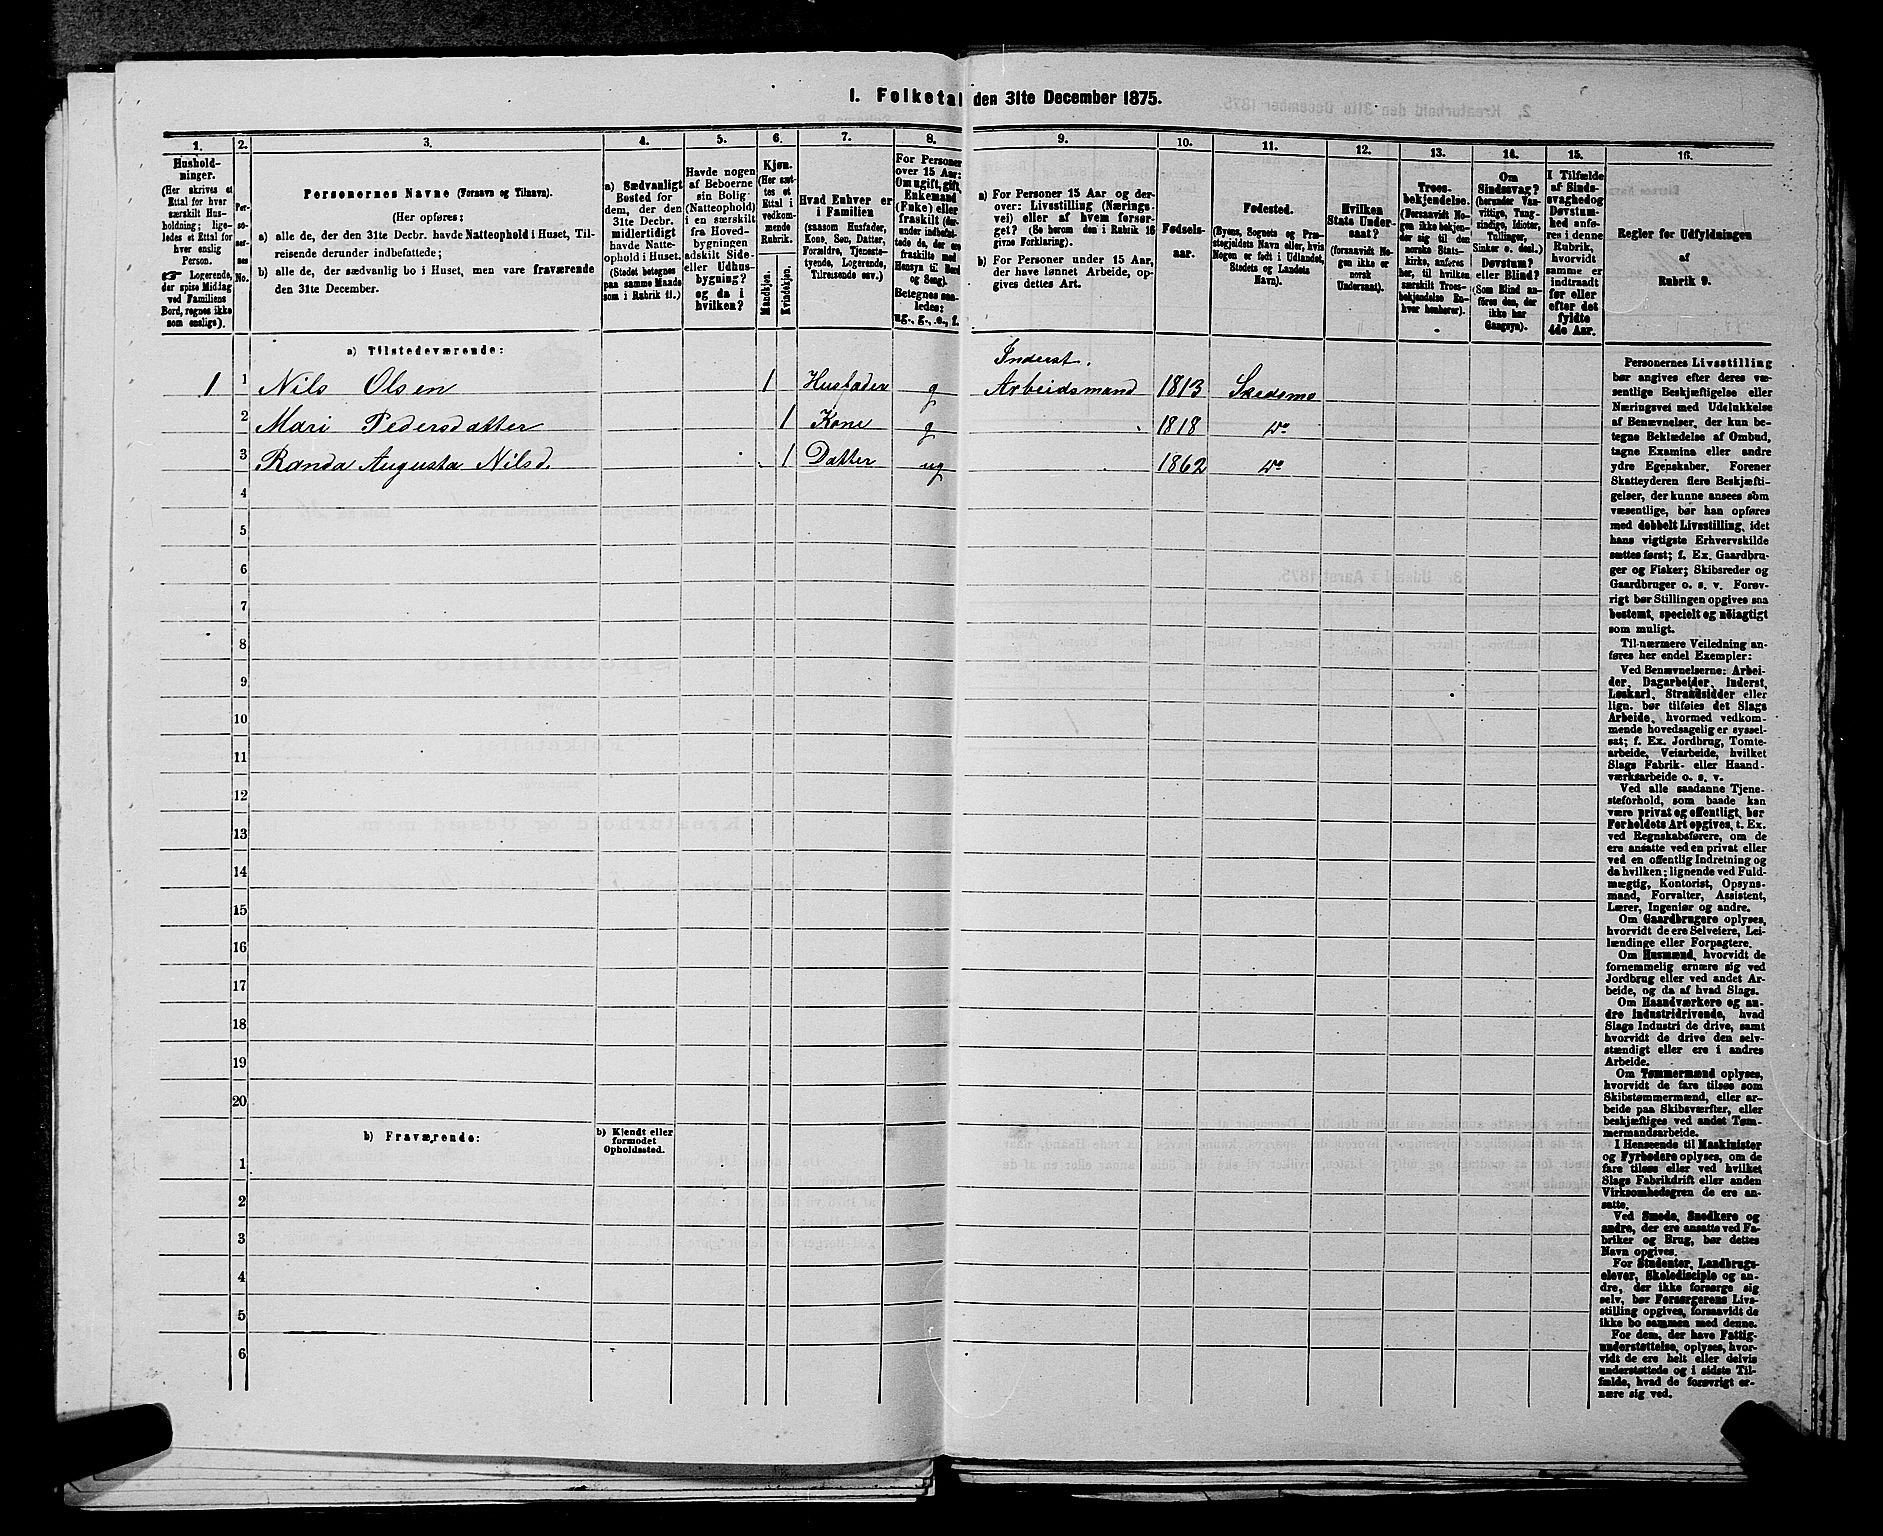 1. Folketal den 31te December 1875.
1.
2.
3.
4.
5.
6.
7.
8.
9.
10.
11.
12.
13.
14.
15.
16.
Hushold-
ninger.
(Her skrives et
Ettal for hver
særskilt Hus-
holdning; lige-
ledes et Ettal for
hver enslig
Person.
☛ Logerende,
der spise Middag
ved Familiens
Bord, regnes ikke
som enslige).
Per-
so-
ner-
nes
No.
Personernes Navne (Fornavn og Tilnavn).
(Her opføres:
a) alle de, der den 31te Decbr. havde Natteophold i Huset, Til-
reisende derunder indbefattede;
b) alle de, der sædvanlig bo i Huset, men vare fraværende
den 31te December.
a) Sædvanligt
Bosted for
dem, der den
31te Decbr.
midlertidigt
havde Natte-
ophold i Huset.
(Stedet betegnes
paa samme Maade
som i Rubrik 11.)
Havde nogen
af Beboerne
sin Bolig
(Natteophold)
i en særskilt
fra Hoved-
bygningen
adskilt Side-
eller Udhus-
bygning?
og da i
hvilken?
Kjøn.
(Her sæt-
tes et
Ettal i
vedkom-
mende
Rubrik.
Mandkjøn.
Kvindekjøn.
Hvad Enhver er
i Familien
(saasom Husfader,
Kone, Søn, Datter,
Forældre, Tjeneste-
tyende, Logerende,
Tilreisende osv.)
For Personer
over 15 Aar:
Om ugift, gift,
Enkemand
(Enke) eller
fraskilt (der-
under indbefat-
tede de, der ere
fraskilte med
Hensyn til Bord
og Seng).
Betegnes saa-
ledes:
ug., g., e., f.
a) For Personer 15 Aar og der-
over: Livsstilling (Nærings-
vei) eller af hvem forsør-
get? (Se herom den i Rubrik 16
givne Forklaring).
b) For Personer under 15 Aar,
der have lønnet Arbeide, op-
gives dettes Art.
Fødsels-
aar.
Fødested.
(Byens, Sognets og Præ-
stegjeldets Navn eller, hvis
Nogen er født i Udlandet,
Stedets og Landets
Navn).
Hvilken
Stats Under-
saat?
(forsaavidt No-
gen ikke er
norsk
Undersaat).
Troes-
bekjendelse.
(Forsaavidt No-
gen ikke bekjen-
der sig til den
norske Stats-
kirke, anføres
her, til hvilken
særskilt Troes-
bekjendelse En-
hver henhører).
Om
Sindssvag?
(herunder Van-
vittige, Tung-
sindige, Idioter,
Tullinger,
Sinker o. desl.)
Døvstum?
eller Blind?
(Som Blind an-
føres den, der
ikke har
Gangsyn).
I Tilfælde
af Sinds-
svaghed og
Døvstum-
hed anføres
i denne
Rubrik,
hvorvidt
samme er
indtraadt
før eller
efter det
fyldte
4de Aar.
Regler for Udfyldningen
af
Rubrik 9.
a) Tilstedeværende:
Inderst.
1 1 Nils Olsen 1 Husfader g Arbeidsmand 1813 Skedsmo
2 Mari Pedersdatter 1 Kone g 1818 do
3 Randa Augusta Nilsd. 1 Datter ug 1862 do
4
5
6
7
8
9
10
11
12
13
14
15
16
17
18
19
20
b) Fraværende:
b) Kjendt eller
formodet
Opholdssted.
1
2
3
4
5
6
Personernes Livsstilling
bør angives efter deres væ-
sentlige Beskjæftigelse eller
Næringsvei med Udelukkelse
af Benævnelser, der kun be-
tegne Beklædelse af Ombud,
tagne Examina eller andre
ydre Egenskaber. Forener
Skatteyderen flere Beskjæfti-
gelser, der kunne ansees som
væsentlige, bør han opføres
med dobbelt Livsstilling, idet
hans vigtigste Erhvervskilde
sættes først; f. Ex. Gaardbru-
ger og Fisker; Skibsreder og
Gaardbruger o. s. v. Forøv-
rigt bør Stillingen opgives saa
bestemt, specielt og nøiagtigt
som muligt.
Til nærmere Veiledning an-
føres her endel Exempler:
Ved Benævnelserne: Arbei-
der, Dagarbeider, Inderst,
Løskarl, Strandsidder eller
lign. bør tilføies det Slags
Arbeide, hvormed vedkom-
mende hovedsagelig er syssel-
sat; f. Ex. Jordbrug, Tomte-
arbeide, Veiarbeide, hvilket
Slags Fabrik- eller Haand-
værksarbeide o. s. v.
Ved alle saadanne Tjene-
steforhold, som baade kan
være privat og offentligt, bør
Forholdets Art opgives, t. Ex.
ved Regnskabsførere, om de
ere ansatte ved en privat eller
ved en offentlig Indretning og
da hvilken; lignende ved Fuld-
mægtig, Kontorist, Opsyns-
mand, Forvalter, Assistent,
Lærer, Ingeniør og andre.
Om Gaardbrugere oplyses,
hvorvidt de ere Selveiere, Lei-
lændinge eller Forpagtere.
Om Husmænd, hvorvidt de
fornemmelig ernære sig ved
Jordbrug eller ved andet Ar-
beide, og da af hvad Slags.
Om Haandværkere og an-
dre Industridrivende, hvad
Slags Industri de drive, samt
hvorvidt de drive den selv-
stændigt eller ere i andres
Arbeide.
Om Tømmermænd oplyses,
hvorvidt de fare tilsøs som
Skibstømmermænd, eller ar-
beide paa Skibsværfter, eller
beskjæftiges ved andet Tøm-
mermandsarbeide.
I Henseende til Maskinister
og Fyrbødere oplyses, om de
fare tilsøs eller ved hvilket
Slags Fabrikdrift eller anden
Virksomhedsgren de ere an-
satte.
Ved Smede, Snedkere og
andre, der ere ansatte ved Fa-
briker og Brug, bør dettes
Navn opgives.
For Studenter, Landbrugs-
elever, Skoledisciple og an-
dre, der ikke forsørge sig
selv, bør Forsørgerens Livs-
stilling opgives, forsaavidt de
ikke bo sammen med denne.
For dem, der have Fattig-
understøttelse, oplyses, hvor-
vidt de ere helt eller delvis
understøttede og i sidste Til-
fælde, hvad de forøvrigt er-
nære sig ved.